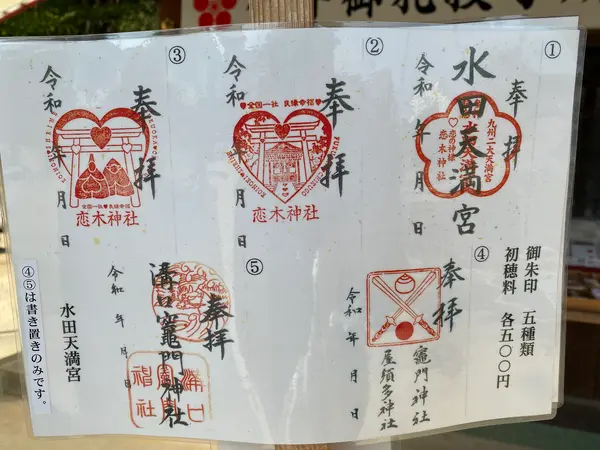 ①
奉拝
水田天満宮
九州二大天満宮
恋の神様
恋木神社
令和 年 月 日
②
奉拝
全国一社 良縁幸福
恋木神社
令和 年 月 日
③
奉拝
全国一社 良縁幸福
恋木神社
令和 年 月 日
御朱印 五種類
初穂料 各五〇〇円
④
奉拝
竈門神社
屋須多神社
令和 年 月 日
⑤
奉拝
溝口竈門神社
令和 年 月 日
水田天満宮
④⑤は書き置きのみです。